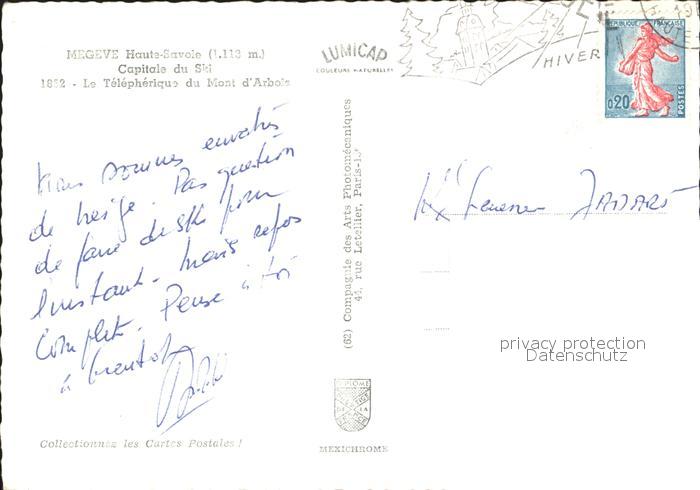 MEGEVE Haute-Savoie (1.113 m.)
Capitale du Ski
1852 - Le Téléphérique du Mont d'Arbois
LUMICAP
COULEURS NATURELLES
HIVER
REPUBLIQUE FRANÇAISE
0,20
POSTES
Nous sommes envahis
de neige. Pas question
de faire du ski pour
l'instant - mais repos
complet. Pense à toi
à bientôt
(62) Compagnie des Arts Photomécaniques
44, rue Letellier, Paris-15e
privacy protection
Datenschutz
DIPLOME
MEXICHROME
Collectionnez les Cartes Postales !